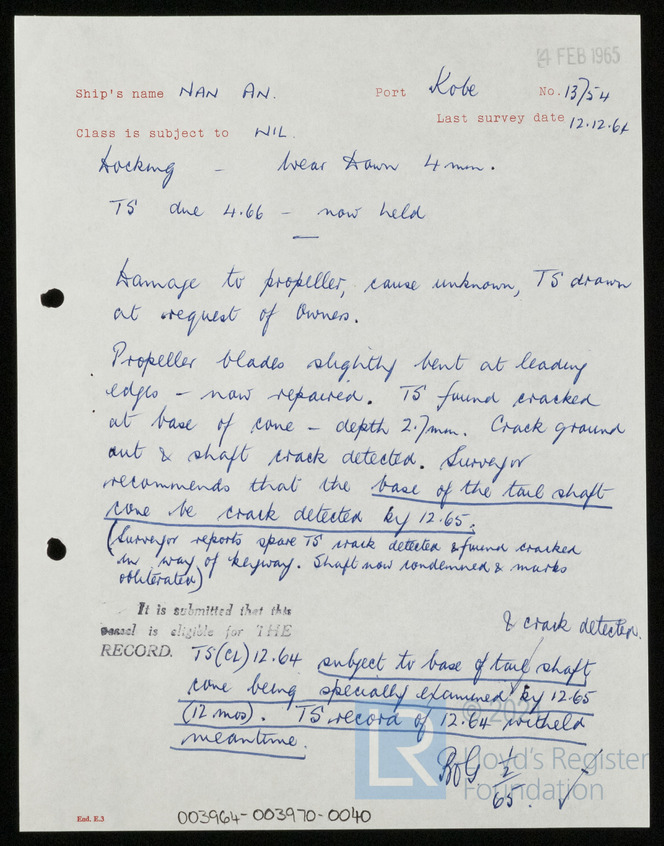 4 FEB 1965
Ship's name NAN AN. Port Kobe No. 13754
Class is subject to NIL. Last survey date 12.12.64
Docking - Wear Down 4 mm.
TS due 4.66 - now held
Damage to propeller, cause unknown, TS drawn
at request of Owners.
Propeller blades slightly bent at leading
edges - now repaired. TS found cracked
at base of cone - depth 2.7mm. Crack ground
out & shaft crack detected. Surveyor
recommends that the base of the tail shaft
cone be crack detected by 12.65.
(Surveyor reports spare TS crack detected & found cracked
in way of keyway. Shaft now condemned & marks
obliterated)
It is submitted that this
vessel is eligible for THE
RECORD. TS(CL) 12.64 subject to base of tail shaft
& crack detected
cone being specially examined by 12.65
(12 mos). TS record of 12.64 witheld
meantime.
1/2/65
LR
Lloyd's Register
Foundation
End. E.3
003964-003970-0040